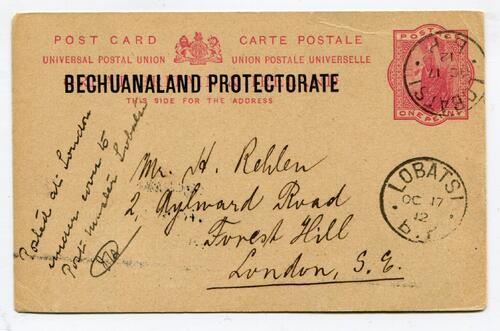 POST CARD CARTE POSTALE
UNIVERSAL POSTAL UNION UNION POSTALE UNIVERSELLE
BECHUANALAND PROTECTORATE
THIS SIDE FOR THE ADDRESS
POSTAGE
ONE PENNY
LOBATSI
OC 17
12
B.P.
Mr. H. Rehlen
2, Aylward Road
Forest Hill
London, S.E.
LOBATSI
OC 17
12
B.P.
Posted at London
under cover to
Post Master Lobatsi